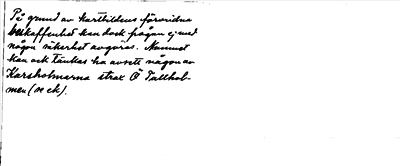 På grund av kartbildens förvridna
beskaffenhet kan dock frågan ej med
någon säkerhet avgöras. Namnet
kan ock tänkas ha avsett någon av
Karsholmarna strax Ö Tallhol-
men (se ek).